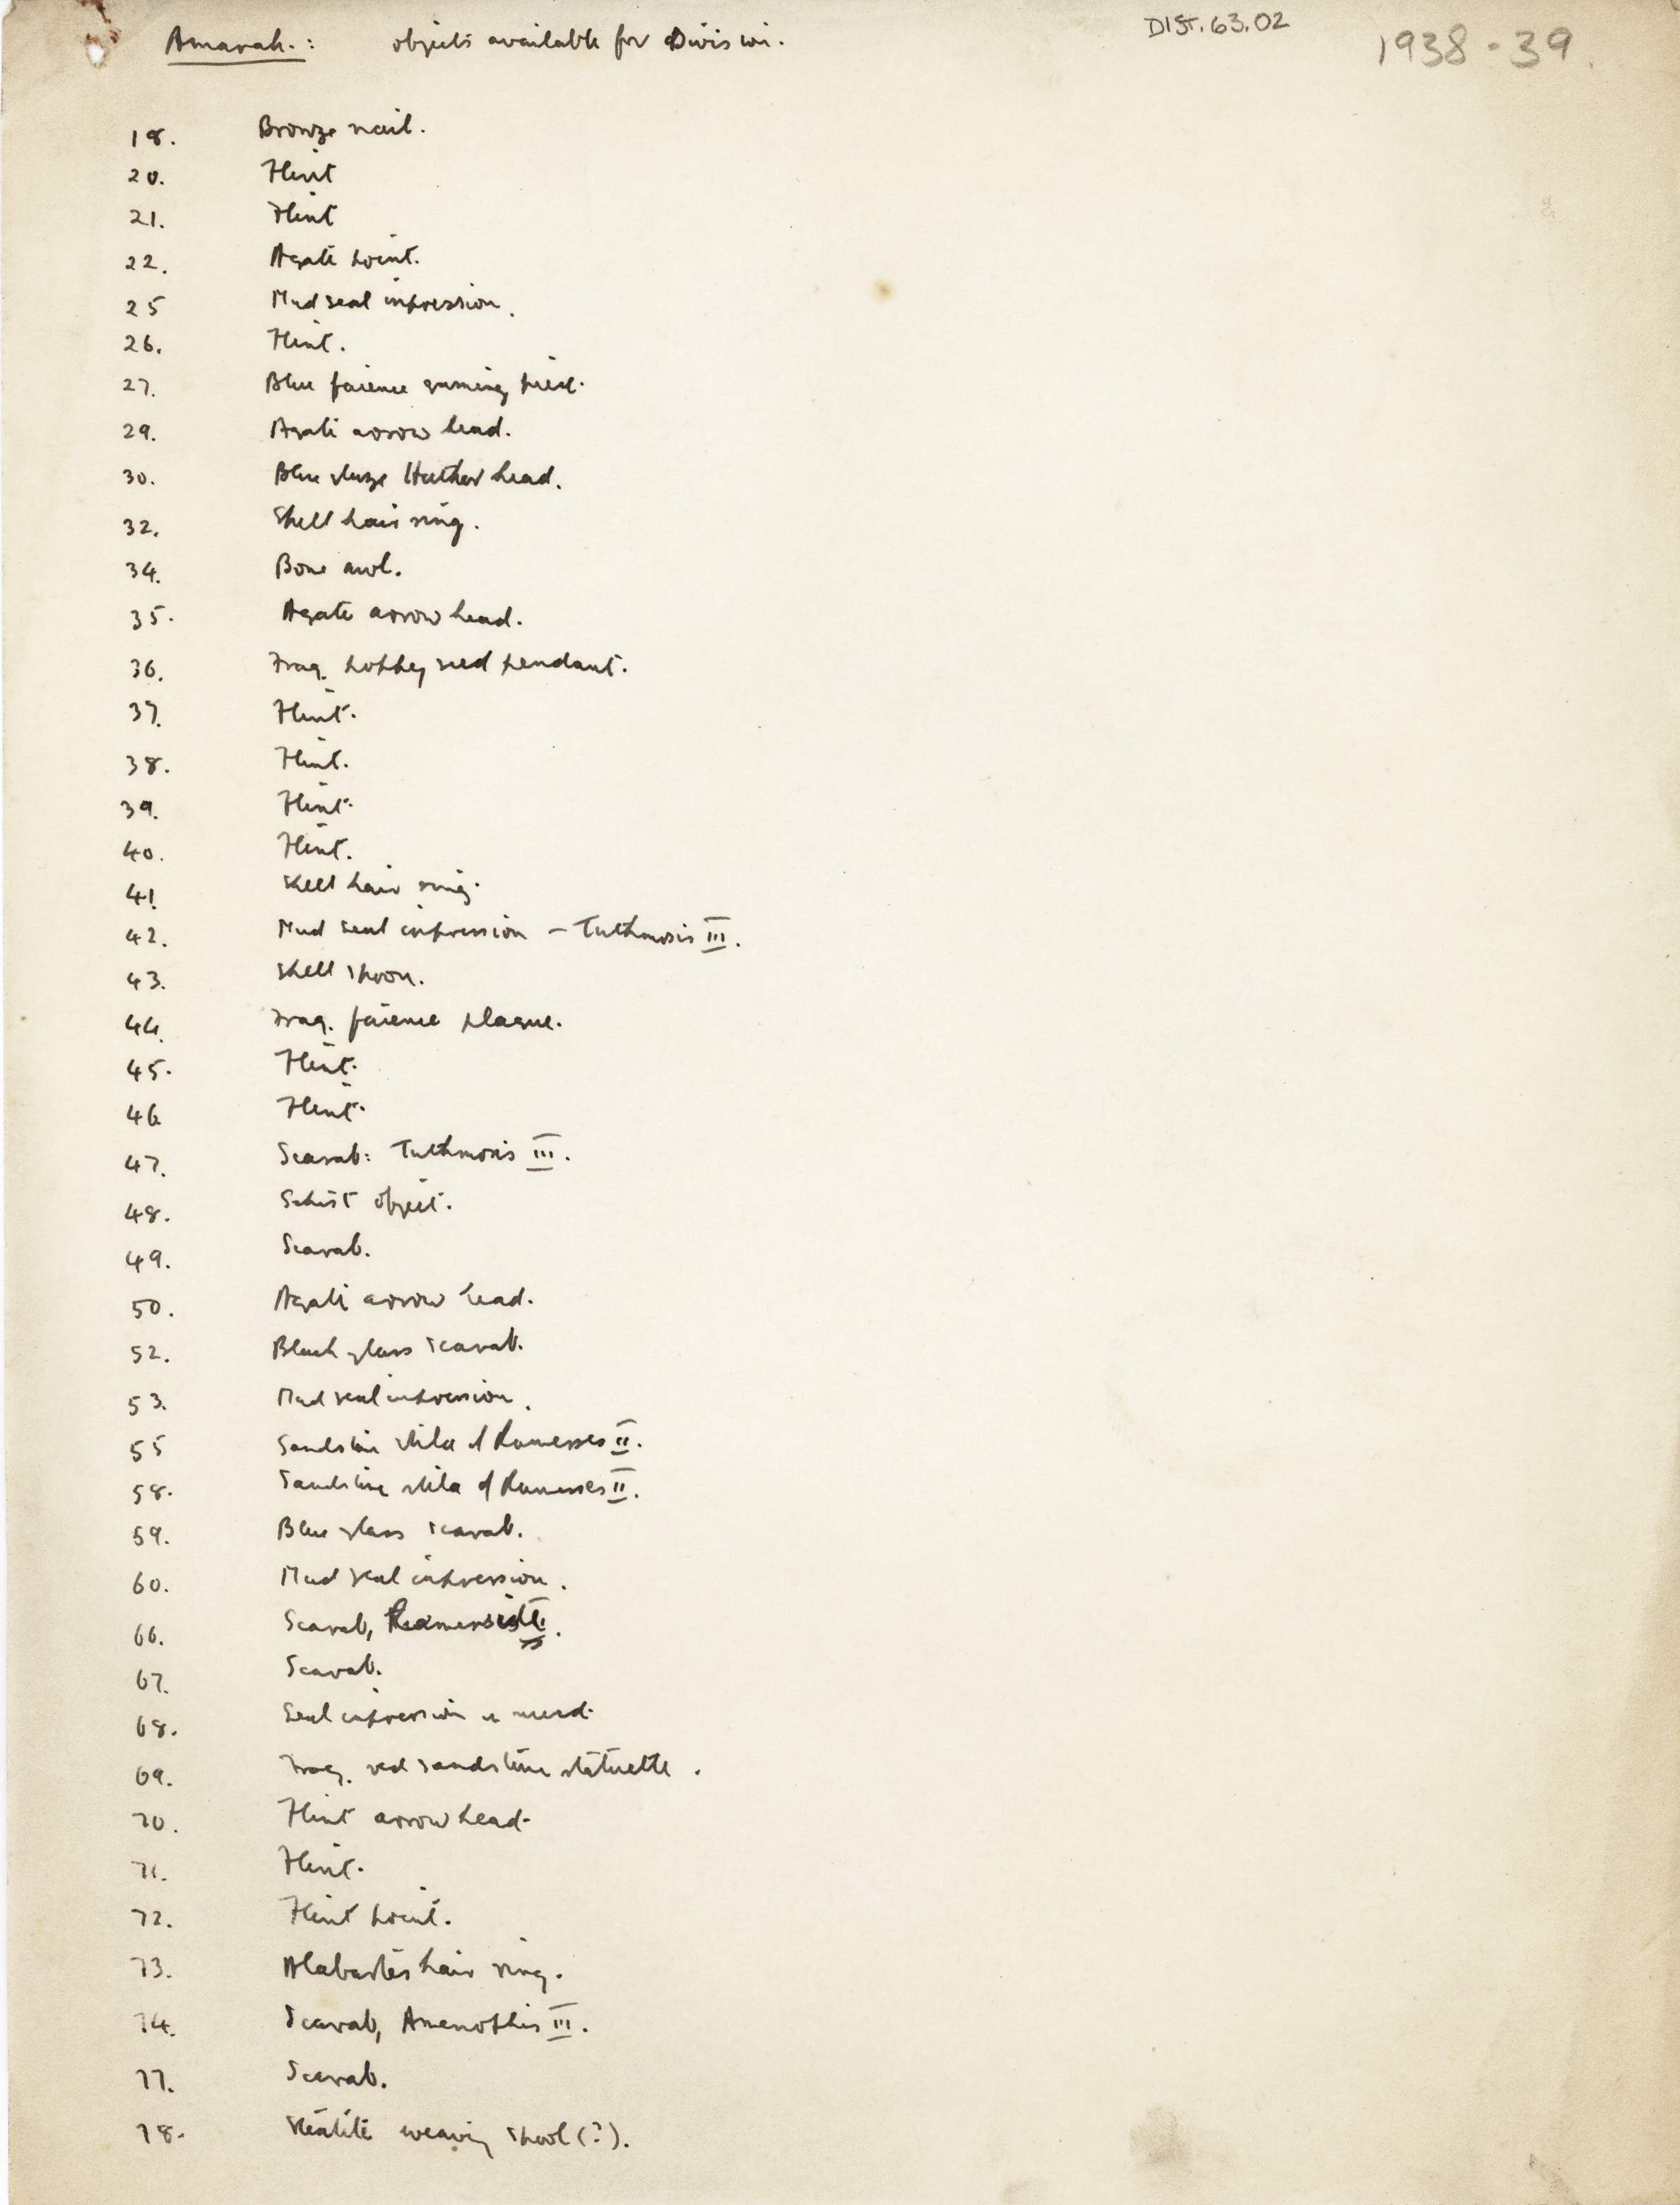 Amarah. : objects available for Division. DIST.63.02 1938-39.
18. Bronze nail.
20. Flint
21. Flint
22. Agate point.
25 Mud seal impression.
26. Flint.
27. Blue faience gaming piece.
29. Agate arrow head.
30. Blue glaze Hathor head.
32. Shell hair ring.
34. Bone awl.
35. Agate arrow head.
36. Frag. poppy seed pendant.
37. Flint.
38. Flint.
39. Flint.
40. Flint.
41. Shell hair ring.
42. Mud seal impression - Tuthmosis III.
43. Shell spoon.
44. Frag. faience plaque.
45. Flint.
46. Flint.
47. Scarab: Tuthmosis III.
48. Schist object.
49. Scarab.
50. Agate arrow head.
52. Black glass scarab.
53. Mud seal impression.
55 Sandstone stela of Ramesses II.
58. Sandstone stela of Ramesses II.
59. Blue glass scarab.
60. Mud seal impression.
66. Scarab,
67. Scarab.
68. Seal impression in mud.
69. Frag. red sandstone statuette.
70. Flint arrow head.
71. Flint.
72. Flint point.
73. Alabaster hair ring.
74. Scarab, Amenophis III.
77. Scarab.
78. Steatite weaving spool (?).